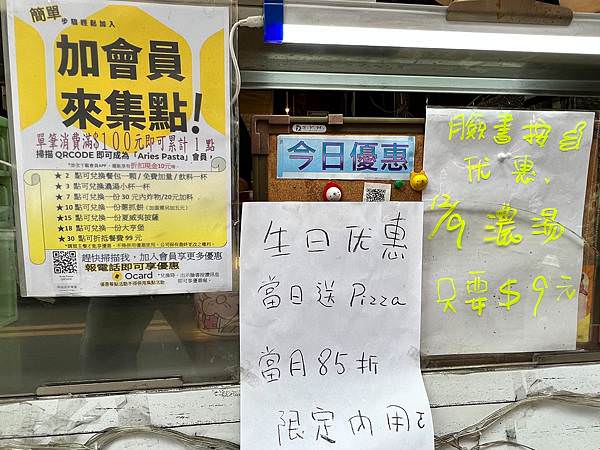 簡單
步驟輕鬆加入
加會員
來集點!
單筆消費滿$100元即可累計1點
掃描 QRCODE 即可成為「Aries Pasta」會員!
★ 2 點可兌換餐包一顆 / 免費加量 / 飲料一杯
★ 3 點可兌換濃湯小杯一杯
★ 7 點可兌換一份30元內炸物/20元加料
★ 10 點可兌換一份蔥抓餅
★15 點可兌換一份夏威夷披薩
★18 點可兌換一份大亨堡
★30 點可折抵餐費 99 元
趕快掃描我，加入會員享更多優惠
報電話即可享優惠
Ocard
今日優惠
生日优惠
當日送 Pizza
當月85折
限定內用
臉書按
优惠
12/9 濃湯
只要$9元